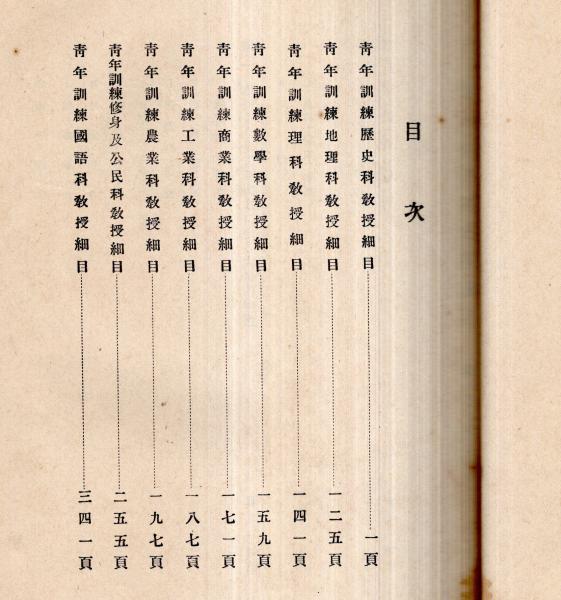 目次
靑年訓練歷史科敎授細目……一頁
靑年訓練地理科敎授細目……一二五頁
靑年訓練理科敎授細目……一四一頁
靑年訓練數學科敎授細目……一五九頁
靑年訓練商業科敎授細目……一七一頁
靑年訓練工業科敎授細目……一八七頁
靑年訓練農業科敎授細目……一九七頁
靑年訓練修身及公民科敎授細目……二五五頁
靑年訓練國語科敎授細目……三四一頁